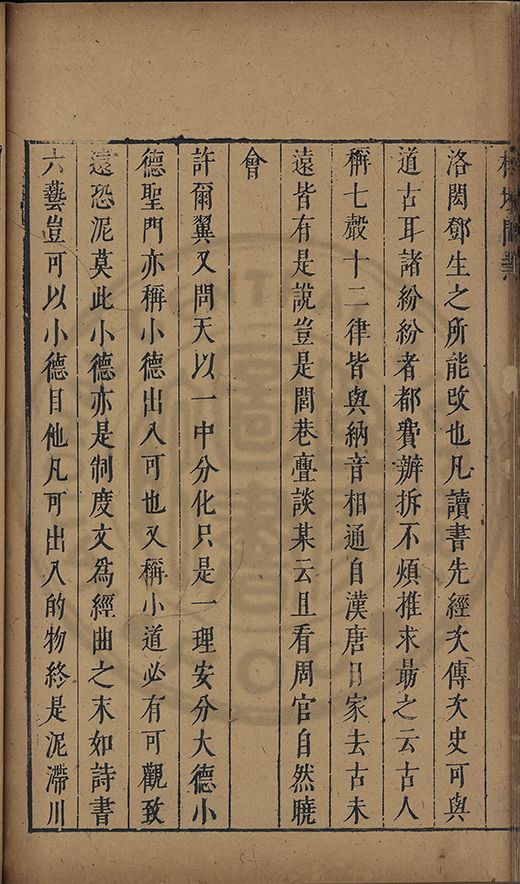 洛閎鄧生之所能改也凡讀書先經次傳次史可與
道古耳諸紛紛者都費辦拆不煩推求最之云古人
稱七聲十二律皆與納音相通自漢唐日家去古未
遠皆有是說豈是閭巷亹談某云且看周官自然曉
會
許爾翼又問天以一中分化只是一理安分大德小
德聖門亦稱小德出入可也又稱小道必有可觀致
遠恐泥莫此小德亦是制度文為經曲之末如詩書
六藝豈可以小德目他凡可出入的物終是泥滯川